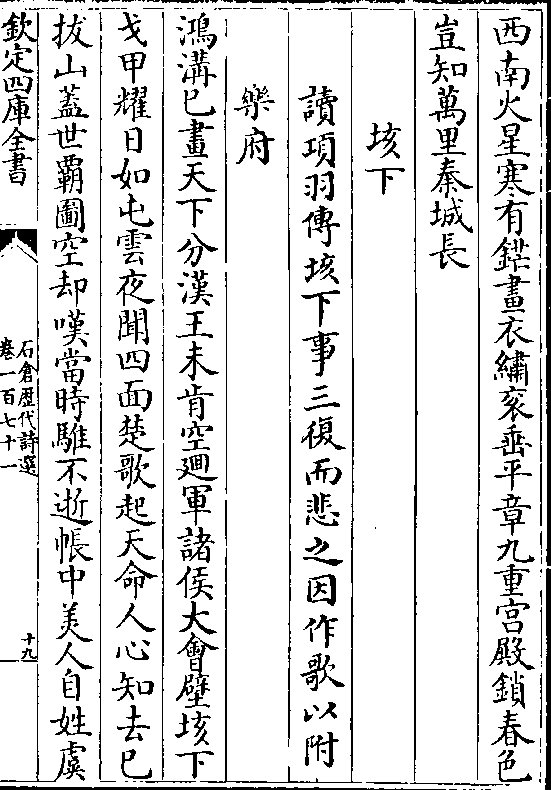 西南火星寒有鋩畫衣繡衮垂平章九重宫殿鎖春色
豈知萬里秦城長
垓下
讀項羽傳垓下事三復而悲之因作歌以附
樂府
鴻溝已畫天下分漢王未肯空廻軍諸侯大會壁垓下
戈甲耀日如屯雲夜聞四面楚歌起天命人心知去已
拔山蓋世覇圖空却嘆當時騅不逝帳中美人自姓虞
欽定四庫全書
石倉歴代詩選
卷一百七十一
十九